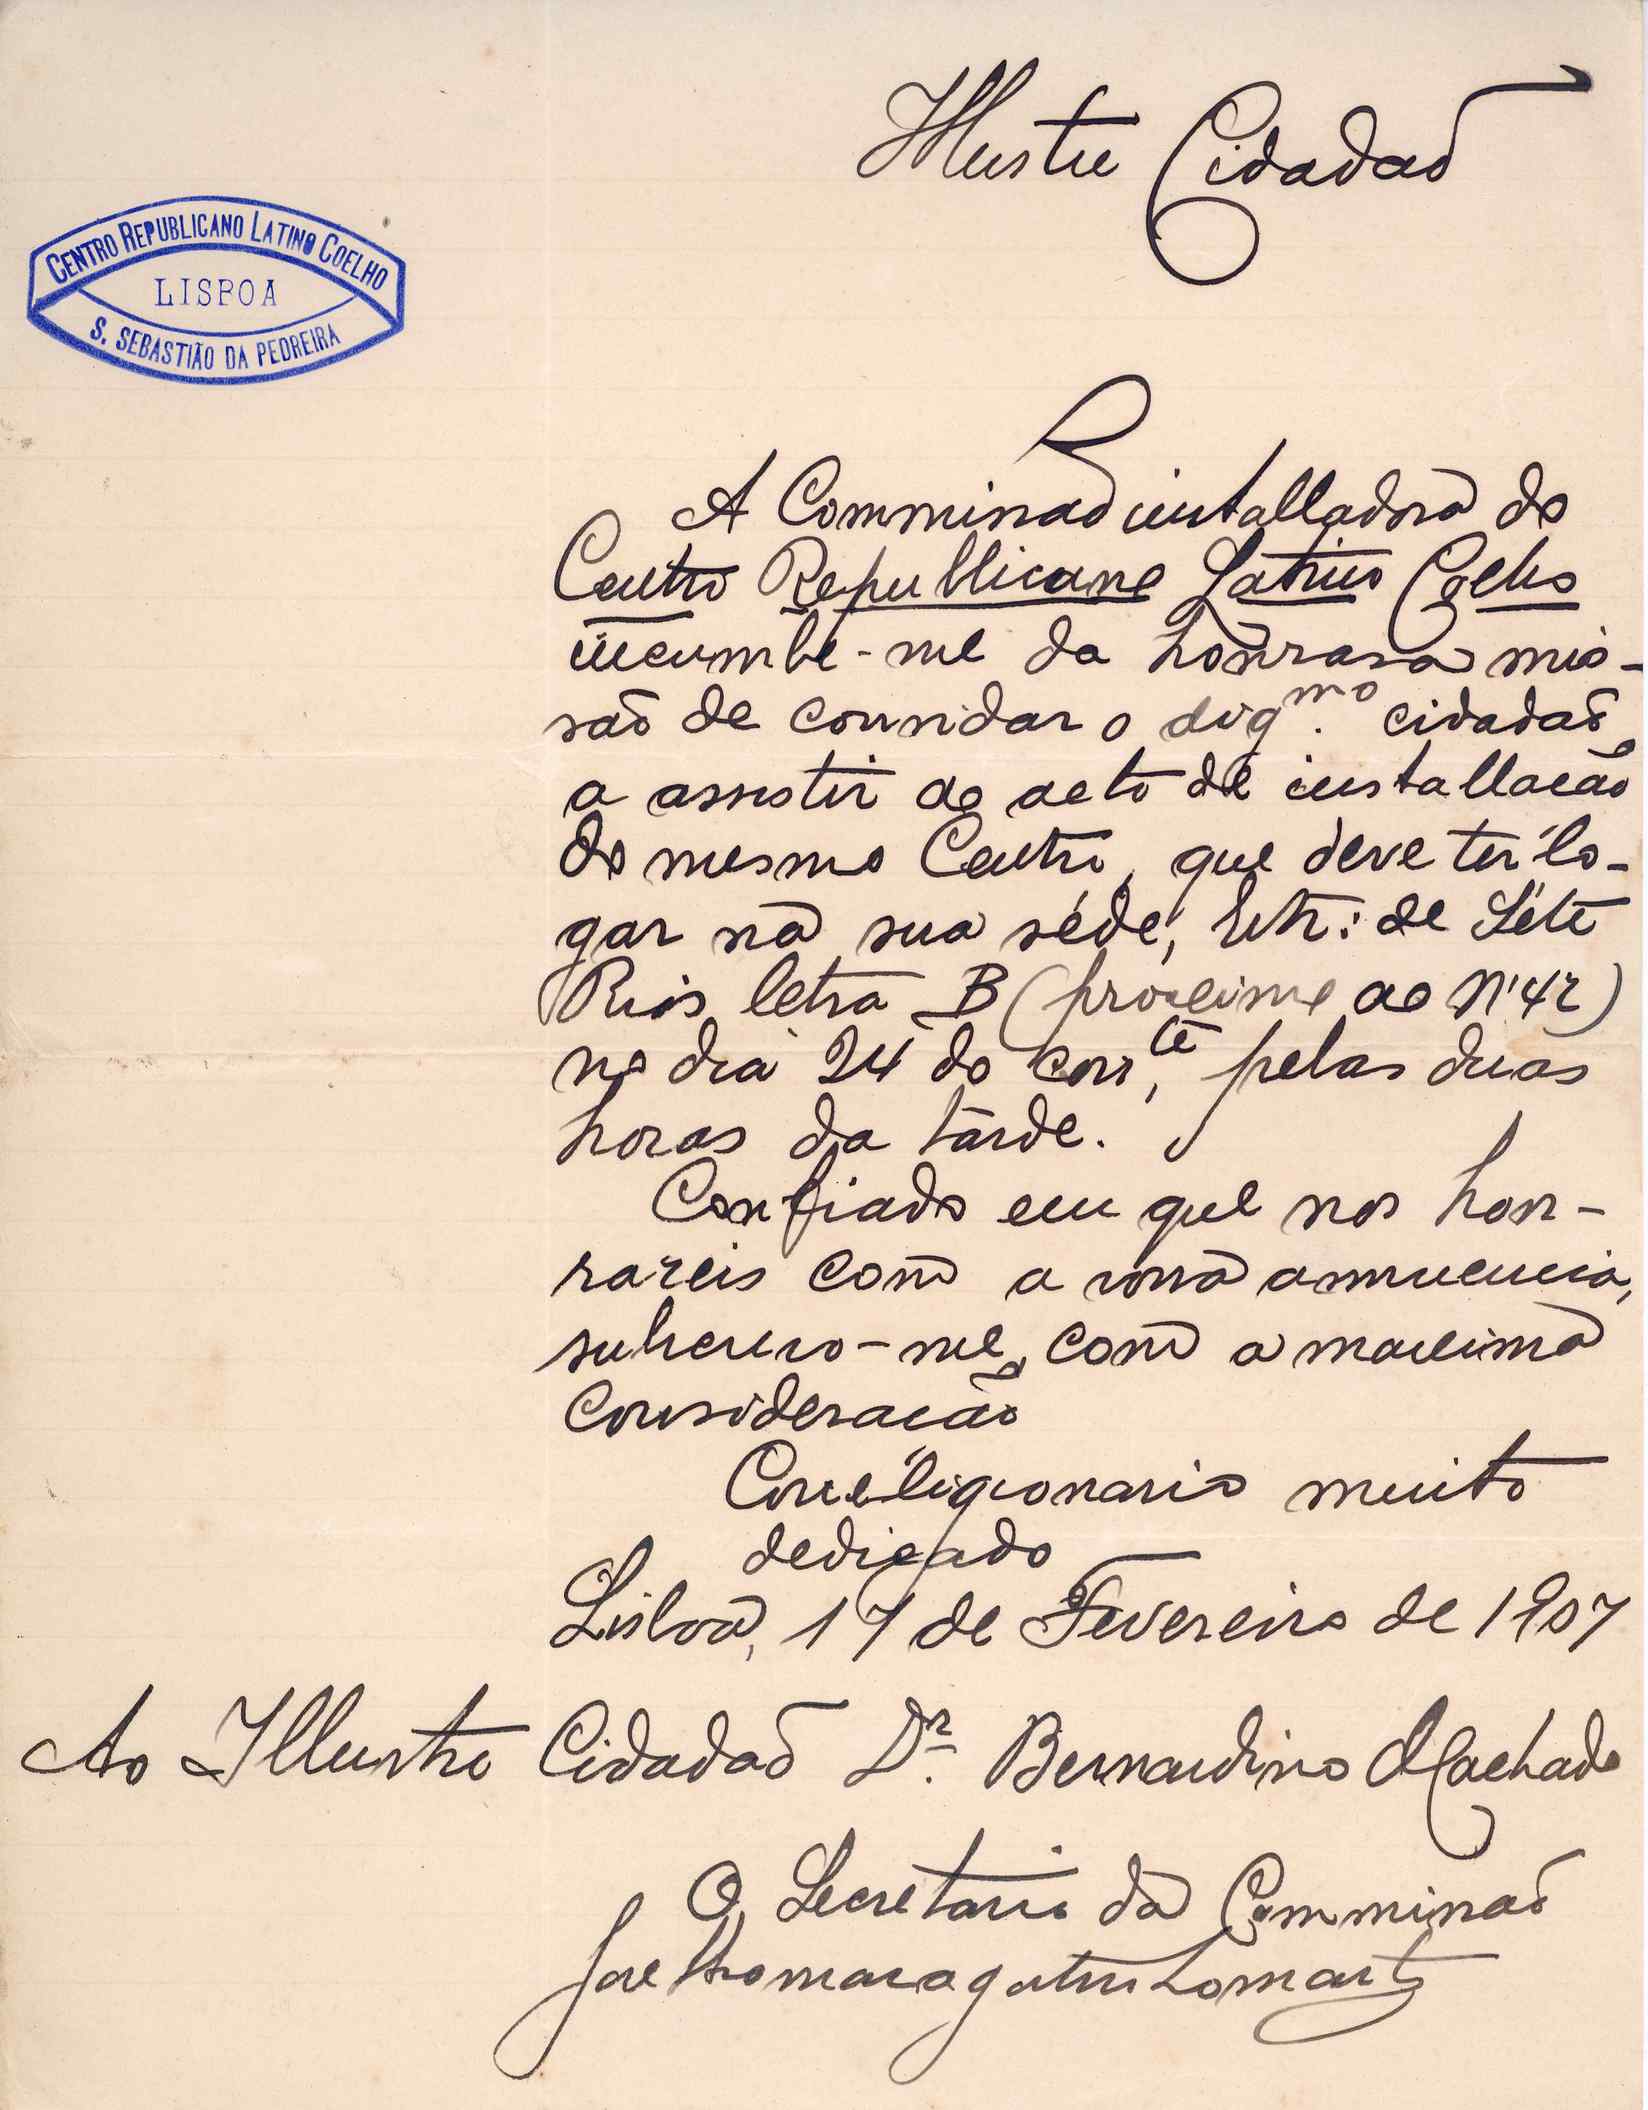 Illustre Cidadão
CENTRO REPUBLICANO LATINO COELHO
LISBOA
S. SEBASTIÃO DA PEDREIRA
A Commissão installadora do
Centro Republicano Latino Coelho
incumbe-me da honrosa mis-
são de convidar o dig.mo cidadão
a assistir ao acto de installação
do mesmo Centro, que deve ter lo-
gar na sua séde, Estr: de Sete
Rios letra B (proximo ao Nº 42)
no dia 24 do corr.te, pelas duas
horas da tarde.
Confiado em que nos hon-
rareis com a vossa annuencia,
subscrevo-me, com a maxima
consideração
Correligionario muito
dedicado
Lisboa, 17 de Fevereiro de 1907
Ao Illustre Cidadão Dr. Bernardino Machado
O Secretario da Commissão
José